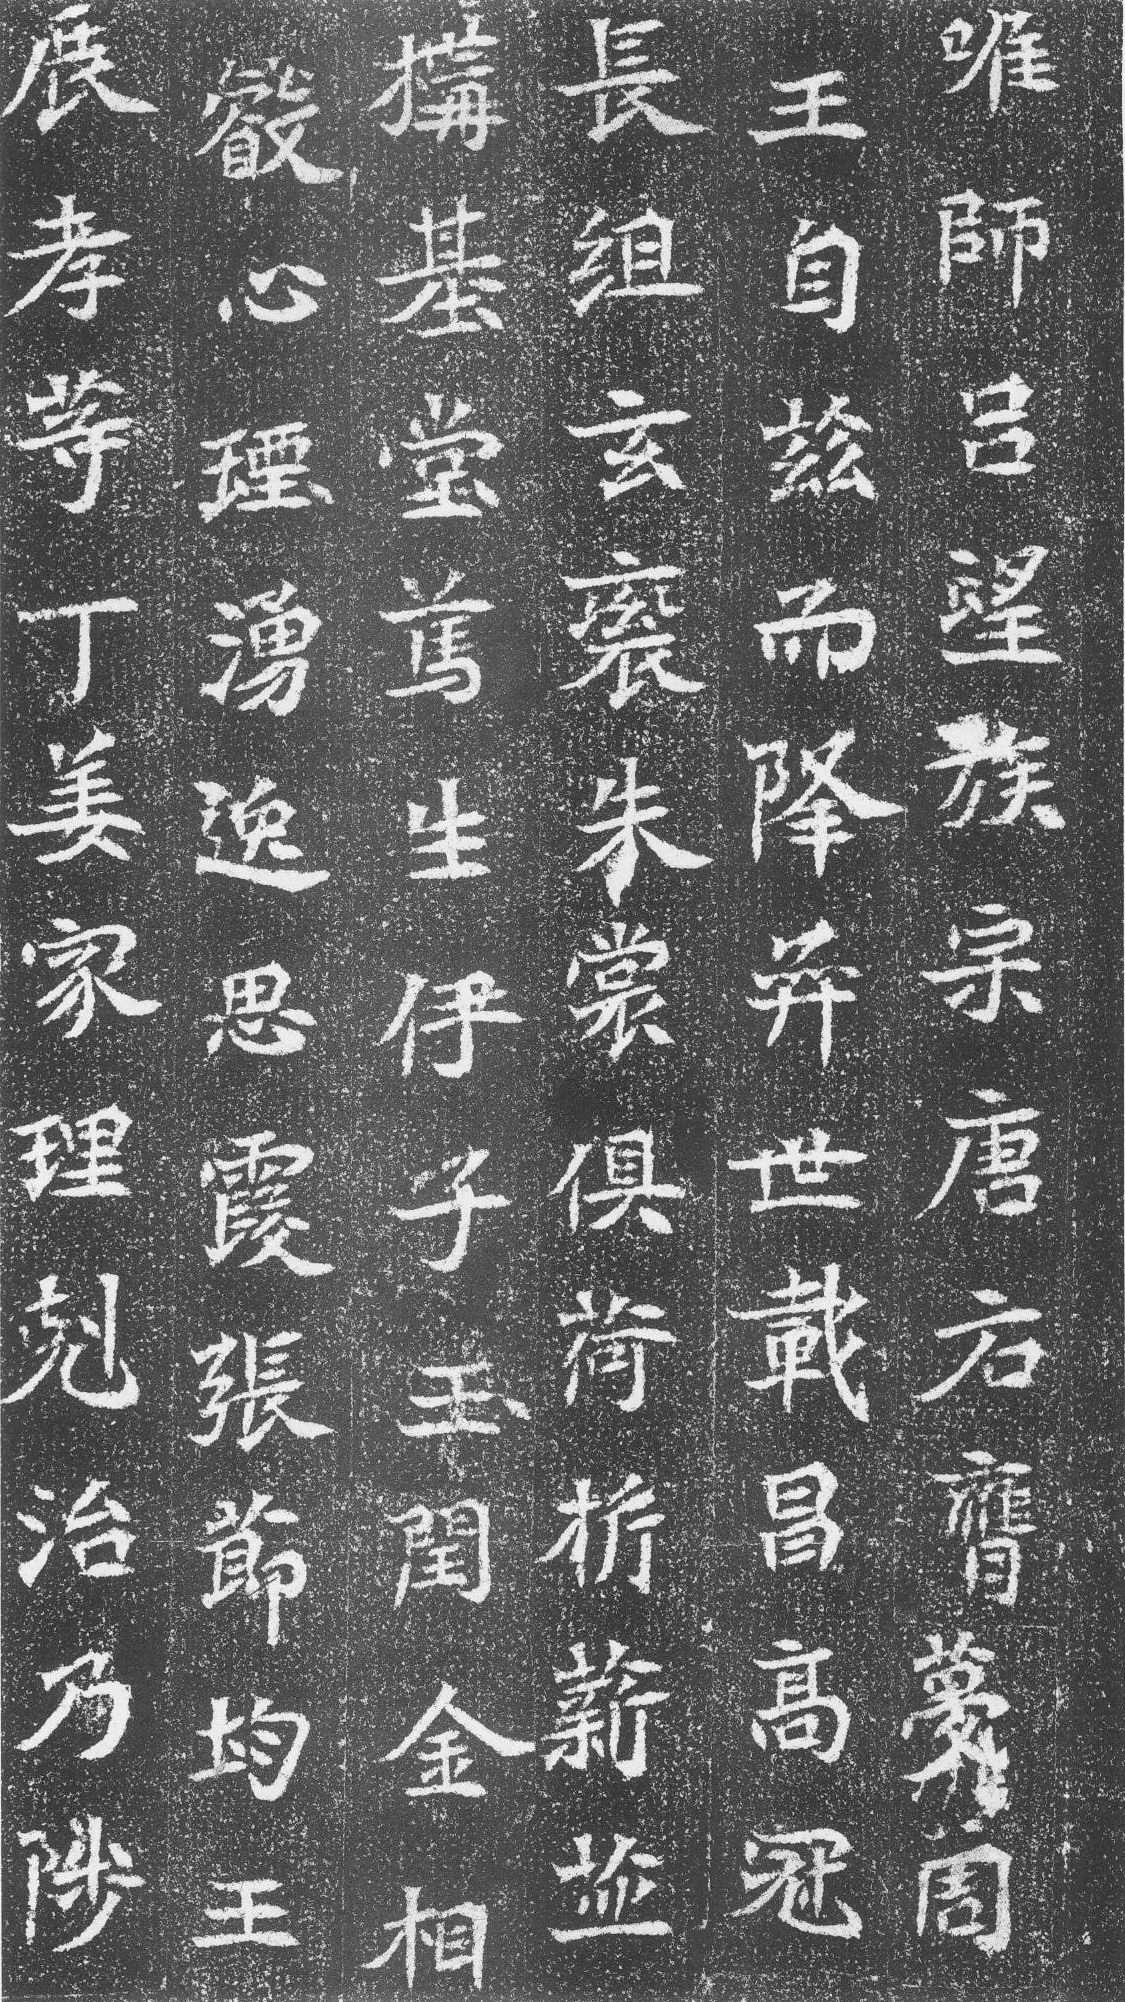 唯師呂望族宗唐右膺夢周
王自茲而降弈世載昌高冠
長組玄袞朱裳俱荷析薪並
構基堂篤生伊子玉閏金相
叡心煙湧逸思霞張節均王
展孝等丁姜家理剋治乃陟